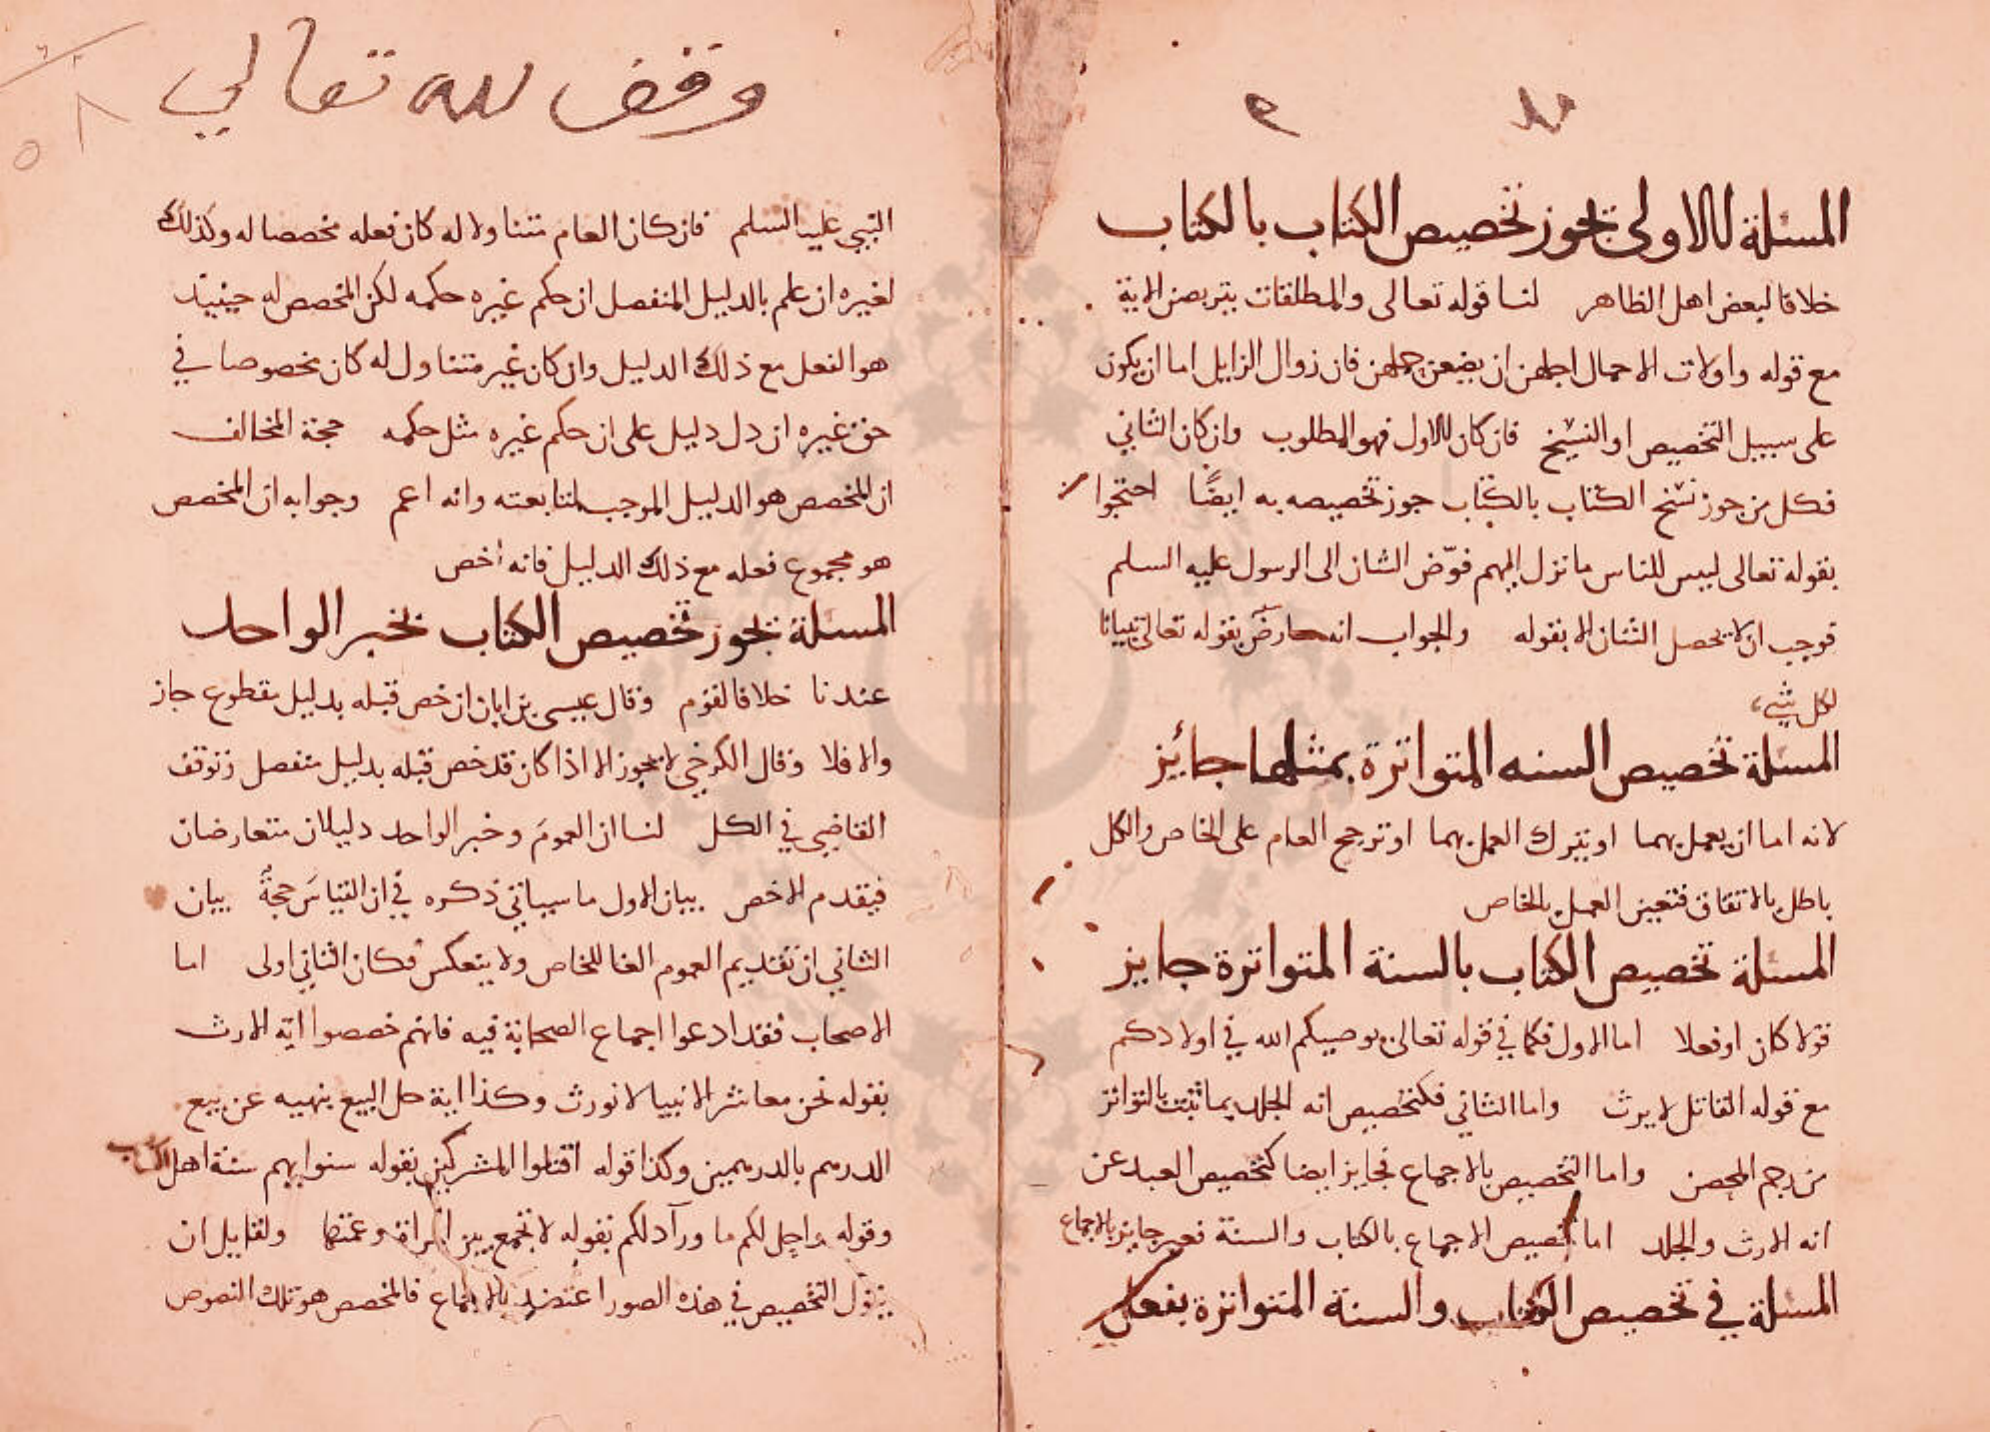 المسئلة الاولى يجوز تخصيص الكتاب بالكتاب
خلافا لبعض اهل الظاهر لنا قوله تعالى والمطلقات يتربصن الاية
مع قوله واولات الاحمال اجلهن ان يضعن حملهن فان زوال الزايل اما ان يكون
على سبيل التخصيص او النسخ فان كان الاول فهو المطلوب وان كان الثاني
فكل من جوز نسخ الكتاب بالكتاب جوز تخصيصه به ايضًا احتجوا
بقوله تعالى ليبين للناس ما نزل اليهم فوّض الشان الى الرسول عليه السلم
فوجب ان لا يحصل الشان الا بقوله والجواب انه معارض بقوله تعالى تبيانا
لكل شيء
المسئلة تخصيص السنه المتواترة بمثلها جائيز
لانه اما ان يعمل بهما او يترك العمل بهما او ترجح العام على الخاص والكل
باطل بالاتفاق فتعين العمل بالخاص
المسئلة تخصيص الكتاب بالسنة المتواترة جايز
قولا كان او فعلا اما الاول فكما في قوله تعالى يوصيكم الله في اولادكم
مع قوله القاتل لا يرث واما الثاني فكتخصيص اية الجلد بما ثبت بالتواتر
من رجم المحصن واما التخصيص بالاجماع فجايز ايضا كتخصيص العبد عن
اية الارث والجلد اما تخصيص الاجماع بالكتاب والسنة فغير جايز بالاجماع
المسئلة في تخصيص الكتاب والسنة المتواترة بفعل
وقف لله تعالي
النبي عليه السلم فان كان العام متناولا له كان فعله مخصصا له وكذلك
لغيره ان علم بالدليل المنفصل ان حكم غيره حكمه لكن المخصص له حينيذ
هو الفعل مع ذلك الدليل وان كان غير متناول له كان مخصوصا في
حق غيره ان دل دليل على ان حكم غيره مثل حكمه حجة المخالف
ان المخصص هو الدليل الموجب لمتابعته وانه اعم وجوابه ان المخصص
هو مجموع فعله مع ذلك الدليل فانه اخص
المسئلة يجوز تخصيص الكتاب بخبر الواحد
عندنا خلافا لقوم وقال عيسى بن ابان ان خص قبله بدليل مقطوع جاز
والا فلا وقال الكرخي لا يجوز الا اذا كان قد خص قبله بدليل منفصل وتوقف
القاضي في الكل لنا ان العمومَ وخبر الواحد دليلان متعارضان
فيقدم الاخص بيان الاول ما سياتي ذكره في ان القياسَ حجةٌ بيان
الثاني ان تقديم العموم الغا للخاص ولا ينعكس فكان الثاني اولى اما
الاصحاب فقد ادعوا اجماع الصحابة فيه فانهم خصصوا اية الارث
بقوله نحن معاشر الانبيا لا نورث وكذا اية حل البيع بنهيه عن بيع
الدرهم بالدرهمين وكذا قوله اقتلوا المشركين بقوله سنوا بهم سنة اهل الكتاب
وقوله واحل لكم ما ورآ ذلكم بقوله لا تجمع بين المراة وعمتها ولقايل ان
يقول التخصيص في هذه الصور اعتضد بالاجماع فالمخصص هو تلك النصوص